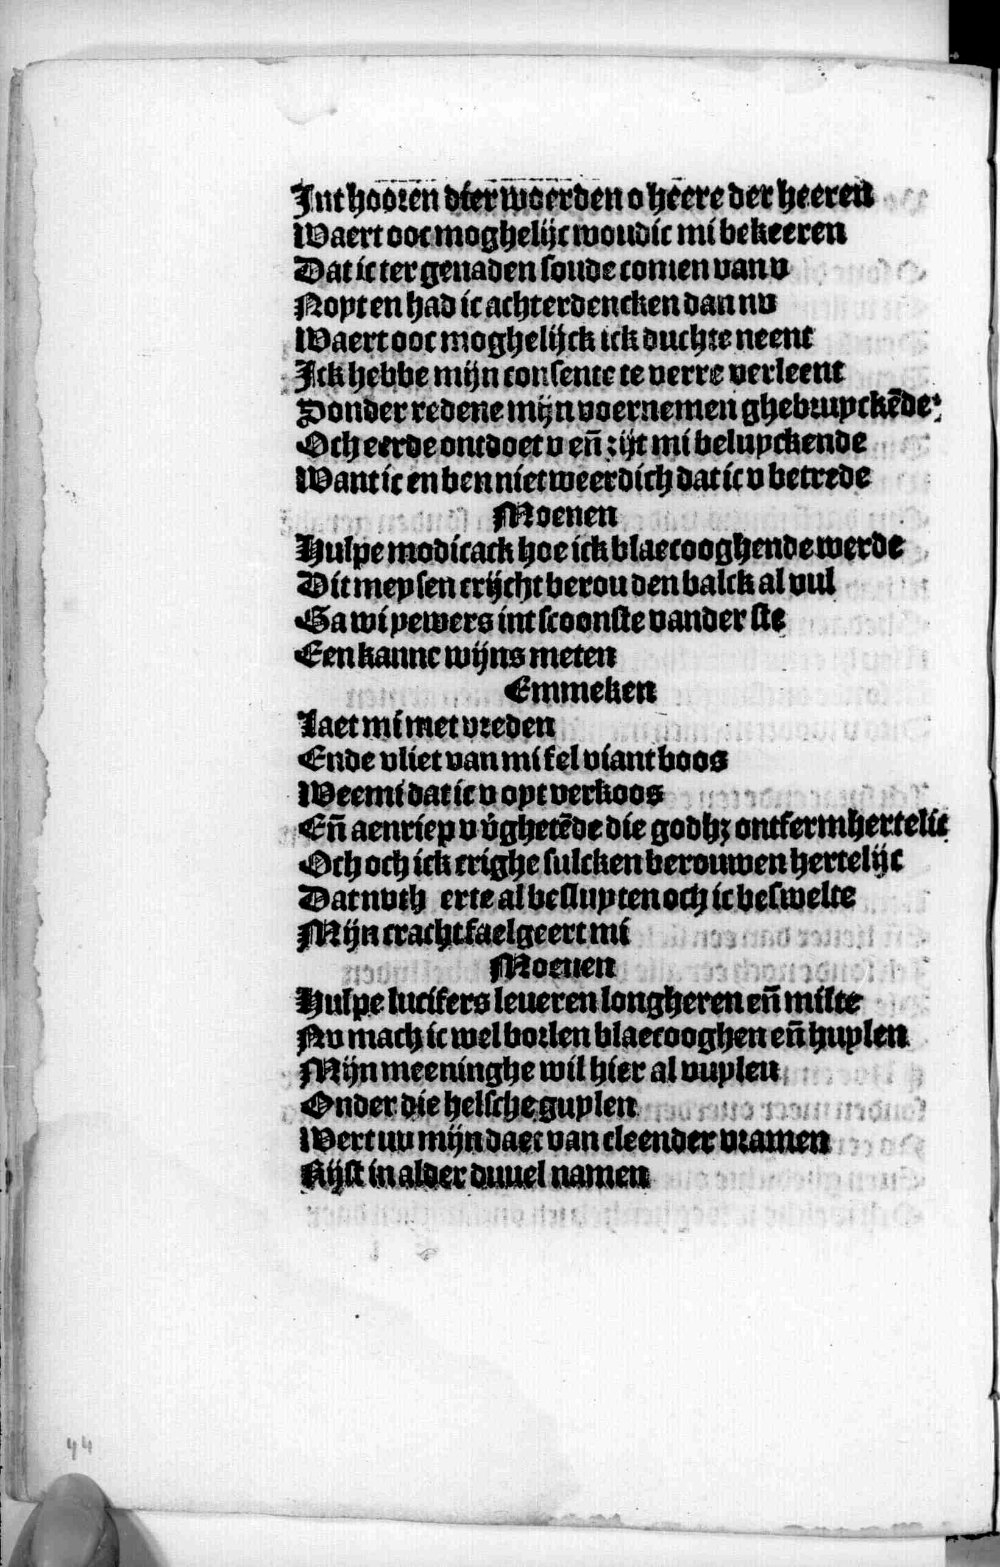 Int hooren dier woerden o heere der heeren
Waert ooc moghelijc woudic mi bekeeren
Dat ic ter genaden soude comen van v
Noyt en had ic achterdencken dan nv
Waert ooc moghelijck ick duchte neent
Ick hebbe mijn consente te verre verleent
Sonder redene mijn voernemen ghebruyckēde
Och eerde ontdoet v eñ zijt mi beluyckende
Want ic en ben niet weerdich dat ic v betrede
Moenen
Hulpe modicack hoe ick blaecooghende werde
Dit meysen crijcht berou den balck al vul
Ga wi pewers int scoonste vander ste
Een kanne wijns meten
Emmeken
Laet mi met vreden
Ende vliet van mi fel viant boos
Wee mi dat ic v oyt verkoos
Eñ aenriep v v̄ghetēde die godhz ontfermhertelic
Och och ick crighe sulcken berouwen hertelijc
Dat nvth erte al besluyten och ic beswelte
Mijn cracht faelgeert mi
Moenen
Hulpe lucifers leueren longheren eñ milte
Nv mach ic wel borlen blaecooghen eñ huylen
Mijn meeninghe wil hier al vuylen
Onder die helsche guylen
Wert uv mijn daet van cleender vramen
Rijst in alder duuel namen
44